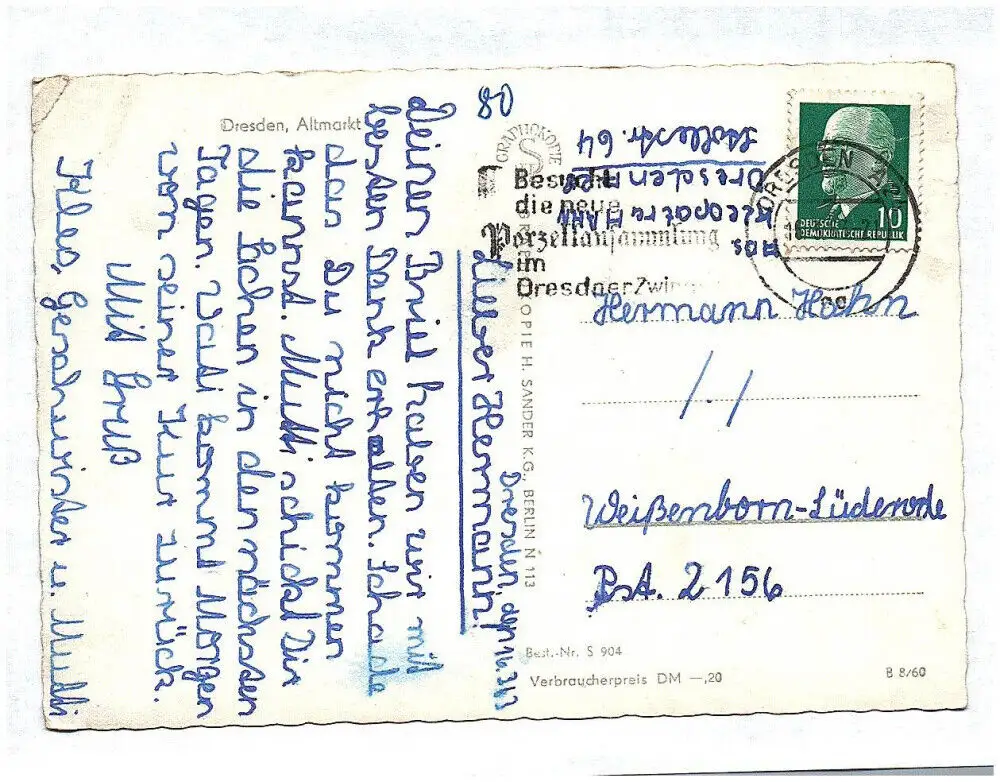 Dresden, Altmarkt
80
Dresden, den 16.3.63
Lieber Hermann!
Deinen Brief haben wir mit
besten Dank erhalten. Schade
das Du nicht kommen
kannst. Mutti schickt Dir
die Sachen in den nächsten
Tagen. Vati kommt Morgen
von seiner Kur zurück.
Mit Gruß
Geschwister u. Mutti
Abs
Kleopatra Hahn
Dresden A
str. 64
GRAPHOKOPIE
S
Besucht
die neue
Porzellansammlung
im
Dresdner Zwinger
DRESDEN
DEUTSCHE
DEMOKRATISCHE REPUBLIK
10
Hermann Hahn
1.1
Weißenborn-Lüderode
PSA. 2156
GRAPHOKOPIE H. SANDER K.G., BERLIN N 113
Best.-Nr. S 904
Verbraucherpreis DM —,20
B 8/60